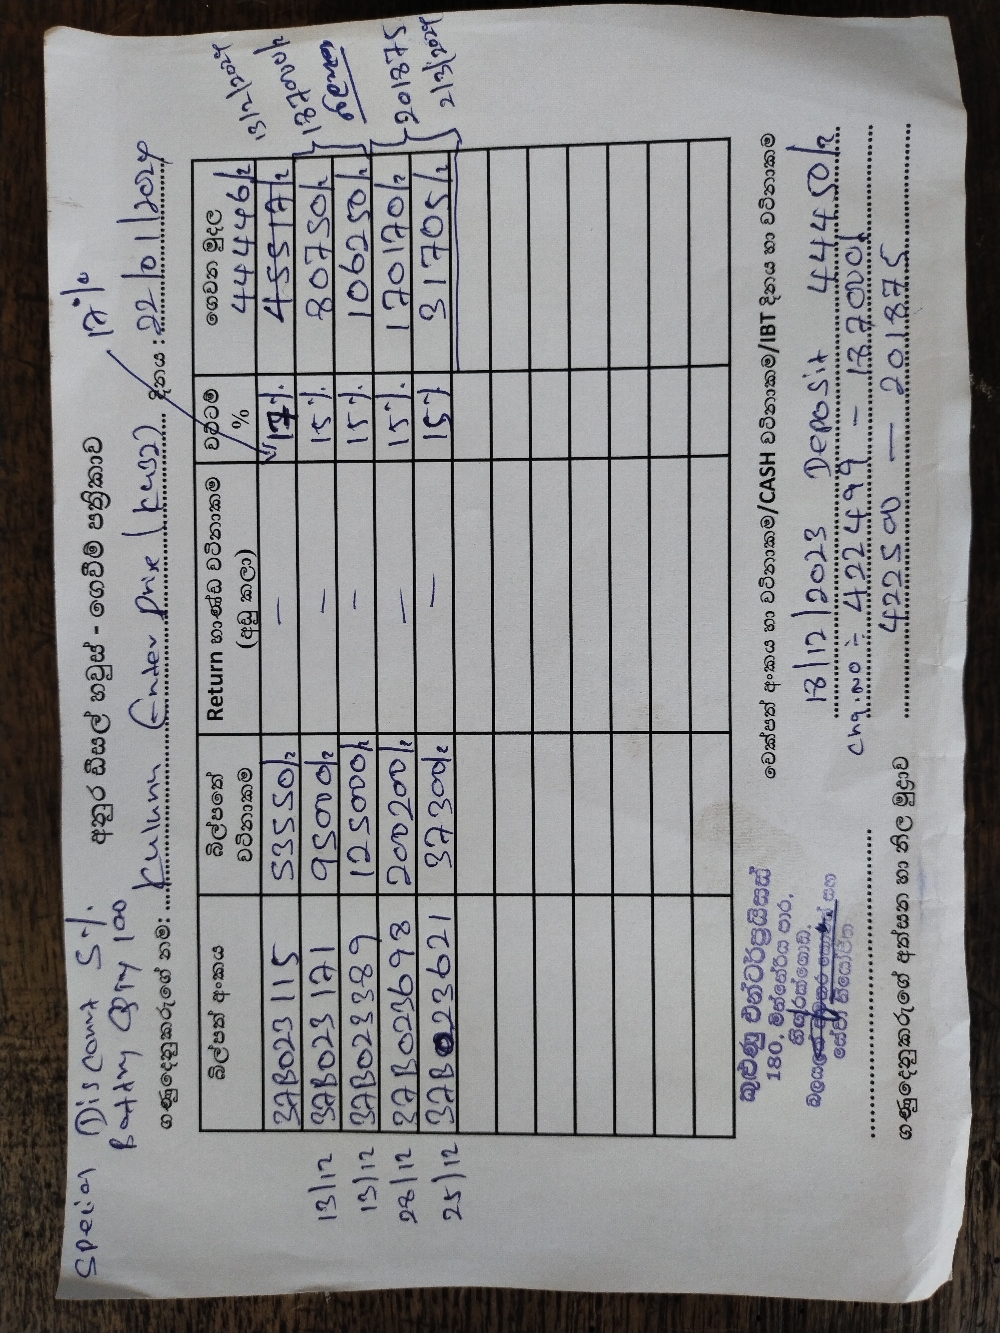 Special Discount 5%.
Battry 100
අනුර ඩීසල් හවුස් - ගෙවීම් පත්‍රිකාව
17%
ගණුදෙනුකරුගේ නම: Kulunu Enter Prise දිනය: 22/01/2024
බිල්පත් අංකය බිල්පතේ වටිනාකම Return භාණ්ඩ වටිනාකම (අඩු කලා) වට්ටම % ගෙවන මුදල
44446/=
3AB023115 53550/= — 17%. 45517/= 13/2/2024
13/12 3AB023171 95000/= — 15%. 80750/= 187000/=
13/12 3AB023389 125000/= — 15%. 106250/=
28/12 3AB023698 200200/= — 15%. 170170/= 201875
25/12 3AB023621 37300/= — 15% 31705/= 2/3/2024
චෙක්පත් අංකය හා වටිනාකම/CASH වටිනාකම/IBT දිනය හා වටිනාකම
18/12/2023 Deposit 44450/=
chq.no ÷ 422499 — 187000/
422500 — 201875
කුළුණු එන්ටර්ප්‍රයිසස්
180, මින්නේරිය පාර,
හිඟුරක්ගොඩ.
ගණුදෙනුකරුගේ අත්සන හා නිල මුද්‍රාව